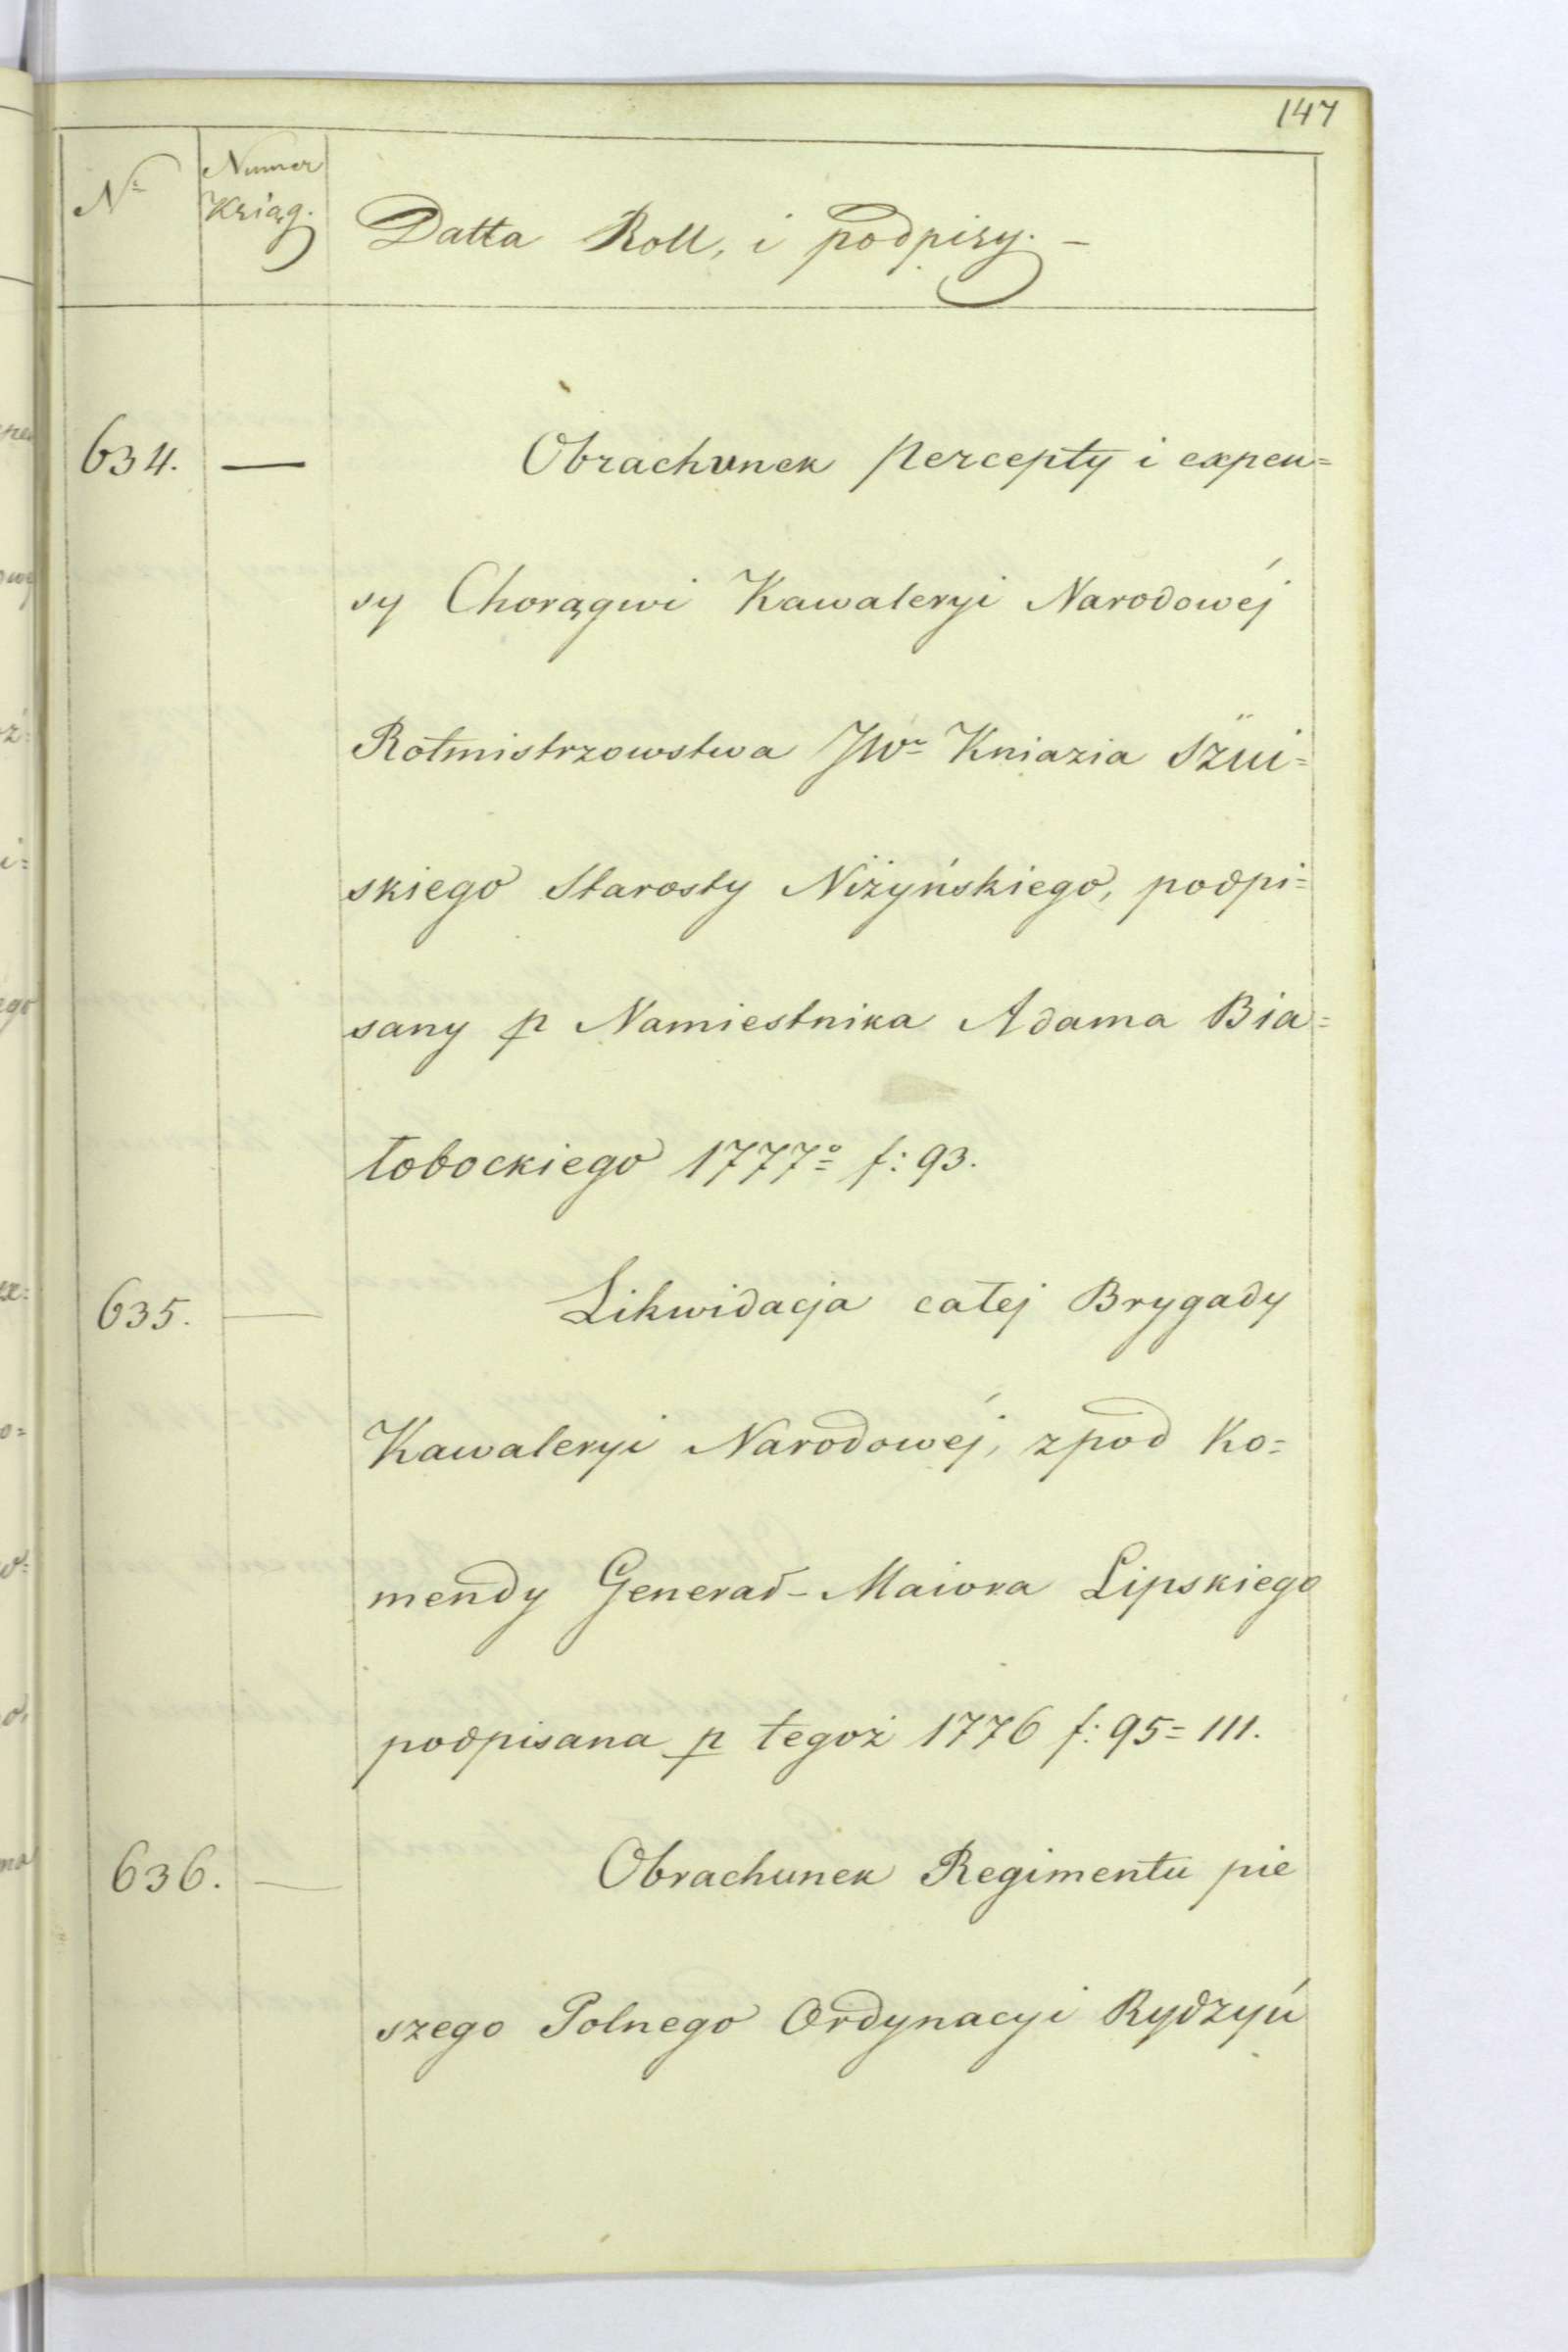 147
Nº Numer Ksiąg. Datta Roll, i podpisy. –
634. — Obrachunek Percepty i expen=
sy Chorągwi Kawaleryi Narodowéj
Rotmistrzowstwa JWº Kniazia Szui=
skiego Starosty Niżyńskiego, podpi=
sany p Namiestnika Adama Bia=
łobockiego 1777º f: 93.
635. — Likwidacja całej Brygady
Kawaleryi Narodowéj, zpod Ko=
mendy Generał-Maiora Lipskiego
podpisana p tegoż 1776 f: 95=111.
636. — Obrachunek Regimentu pie
szego Polnego Ordynacyi Rydzyń